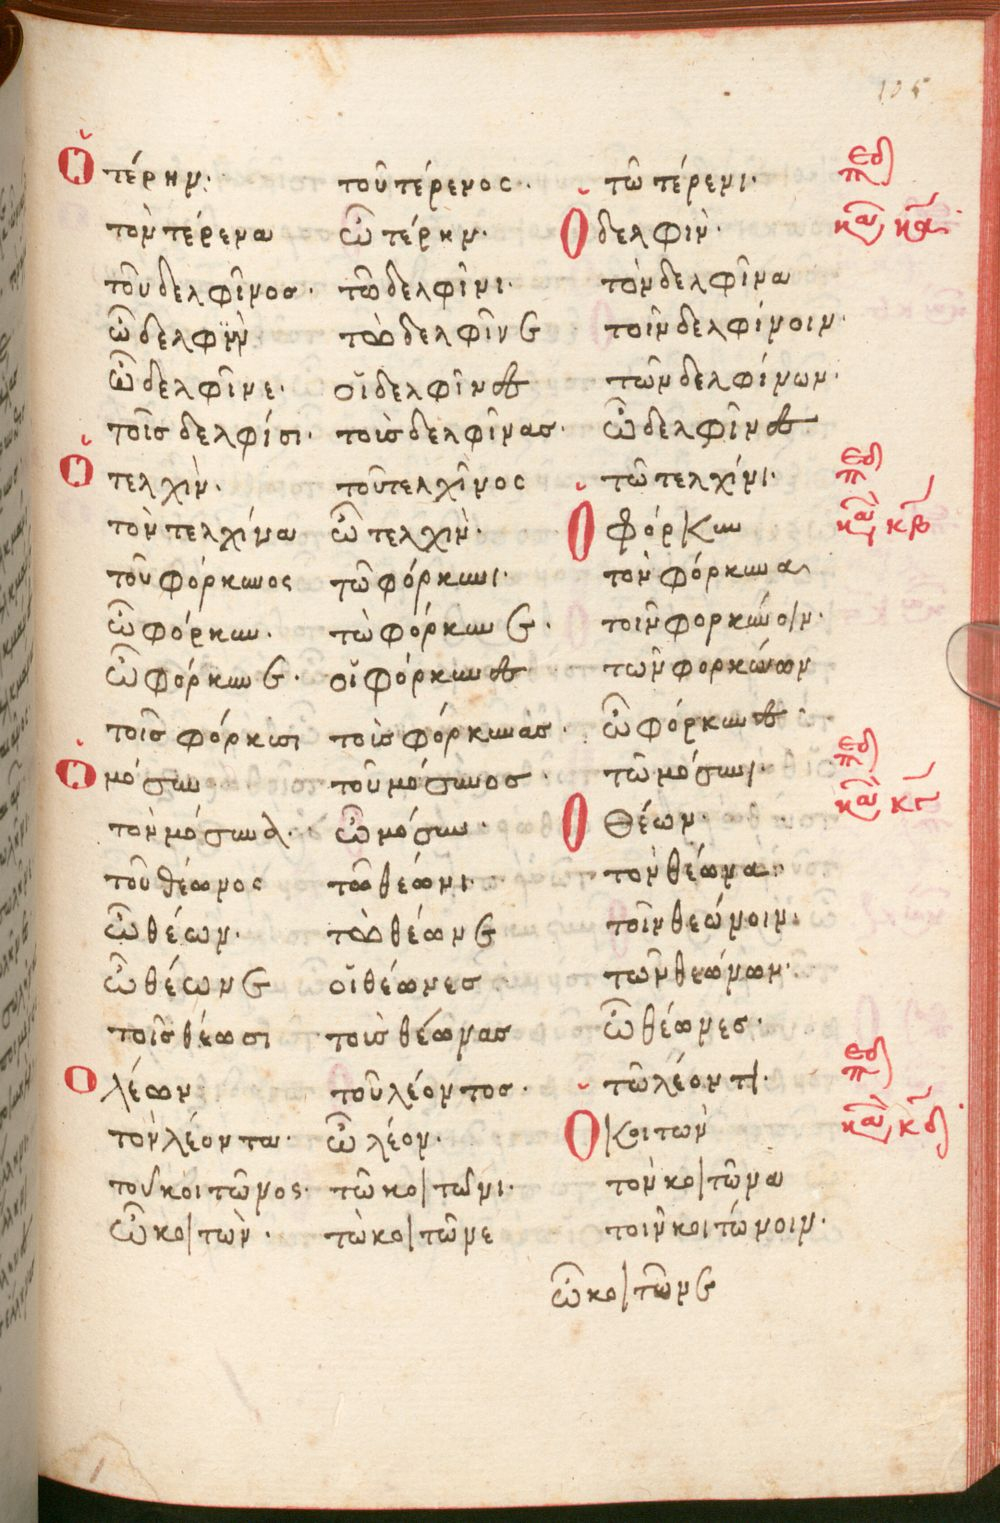 105
Ὁ τέρην· τοῦ τέρενος· τῶ τέρενι·
τὸν τέρενα ὦ τέρην· Ὁ δελφὶν·
τοῦ δελφῖνος· τῶ δελφῖνι· τὸν δελφῖνα
ὦ δελφὶν τὼ δελφῖνε τοῖν δελφίνοιν·
ὦ δελφῖνε· οἱ δελφῖνες τῶν δελφίνων·
τοῖς δελφίσι· τοὺς δελφῖνας· ὦ δελφῖνες
Ὁ τελχὶν· τοῦ τελχῖνος τῶ τελχίνι·
τὸν τελχίνα ὦ τελχὶν· Ὁ φόρκυν
τοῦ φόρκυνος τῶ φόρκυνι· τὸν φόρκυνα
ὦ φόρκυν· τὼ φόρκυνε· τοῖν φορκύνοιν·
ὦ φόρκυνε· οἱ φόρκυνες τῶν φορκύνων
τοῖς φόρκυσι τοὺς φόρκυνας· ὦ φόρκυνες
Ὁ μόσυν τοῦ μόσυνος· τῶ μόσυνι·
τὸν μόσυνα· ὦ μόσυν· Ὁ Θέων·
τοῦ θέωνος τῶ θέωνι· τὸν θέωνα·
ὦ θέων· τὼ θέωνε τοῖν θεώνοιν·
ὦ θέωνε οἱ θέωνες τῶν θεώνων·
τοῖς θέωσι τοὺς θέωνας ὦ θέωνες·
Ὁ λέων τοῦ λέοντος· τῶ λέοντι·
τὸν λέοντα· ὦ λέον· Ὁ κοιτὼν
τοῦ κοιτῶνος· τῶ κοιτῶνι· τὸν κοιτῶνα
ὦ κοιτὼν· τὼ κοιτῶνε τοῖν κοιτώνοιν·
ὦ κοιτῶνε